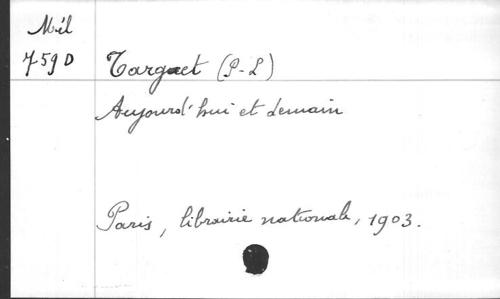 Mél
759 D Targuet (P-L)
Aujourd'hui et demain
Paris, librairie nationale, 1903.